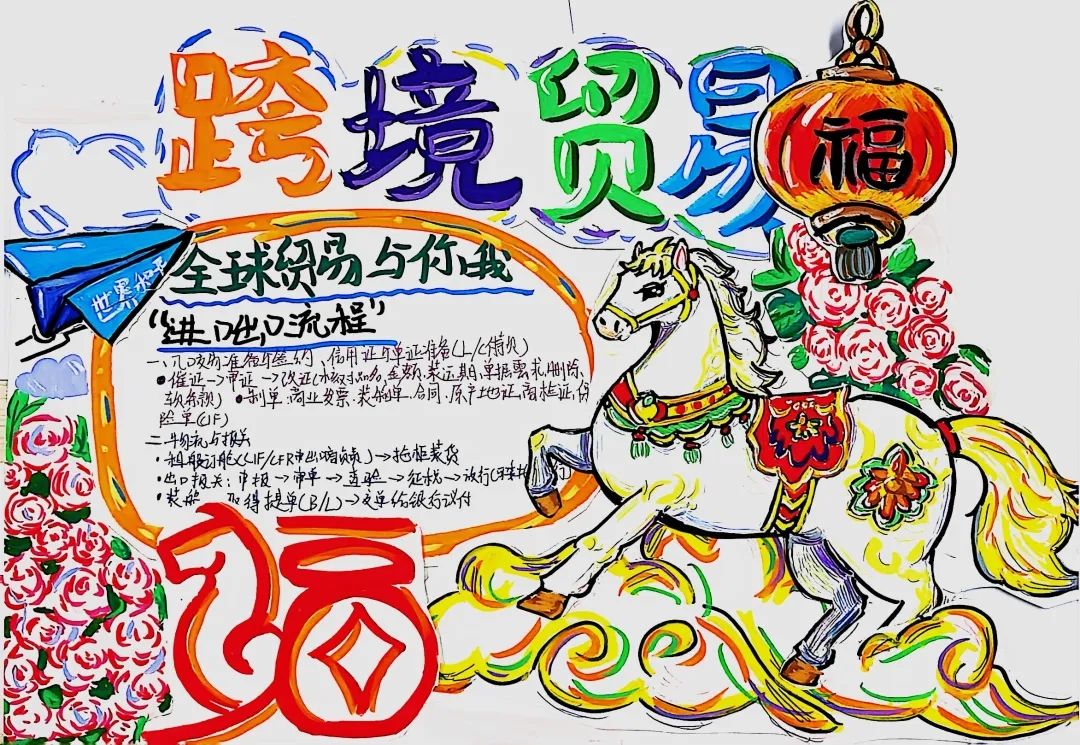 跨境贸易
福
世界和平
全球贸易与你我
"进口出口流程"
信用证与单证准备(L/C情况)
• 催证→审证→改证(核对品名、金额、装运期、单据需求,删除
软条款) • 制单:商业发票.装箱单.合同.原产地证,商检证,保
险单(CIF)
二、物流与报关
• 租船订舱(CIF/CFR由出口商负责)→拖柜装货
• 出口报关:申报→审单→查验→征税→放行
• 装船 取得提单(B/L)→交单给银行议付
福